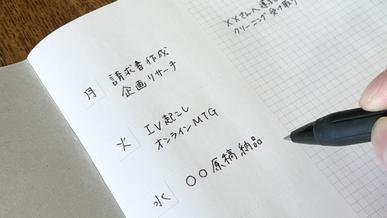 月
請求書作成
企画リサーチ
火
IV起こし
オンラインMTG
水
〇〇原稿納品
クリーニング受け取り